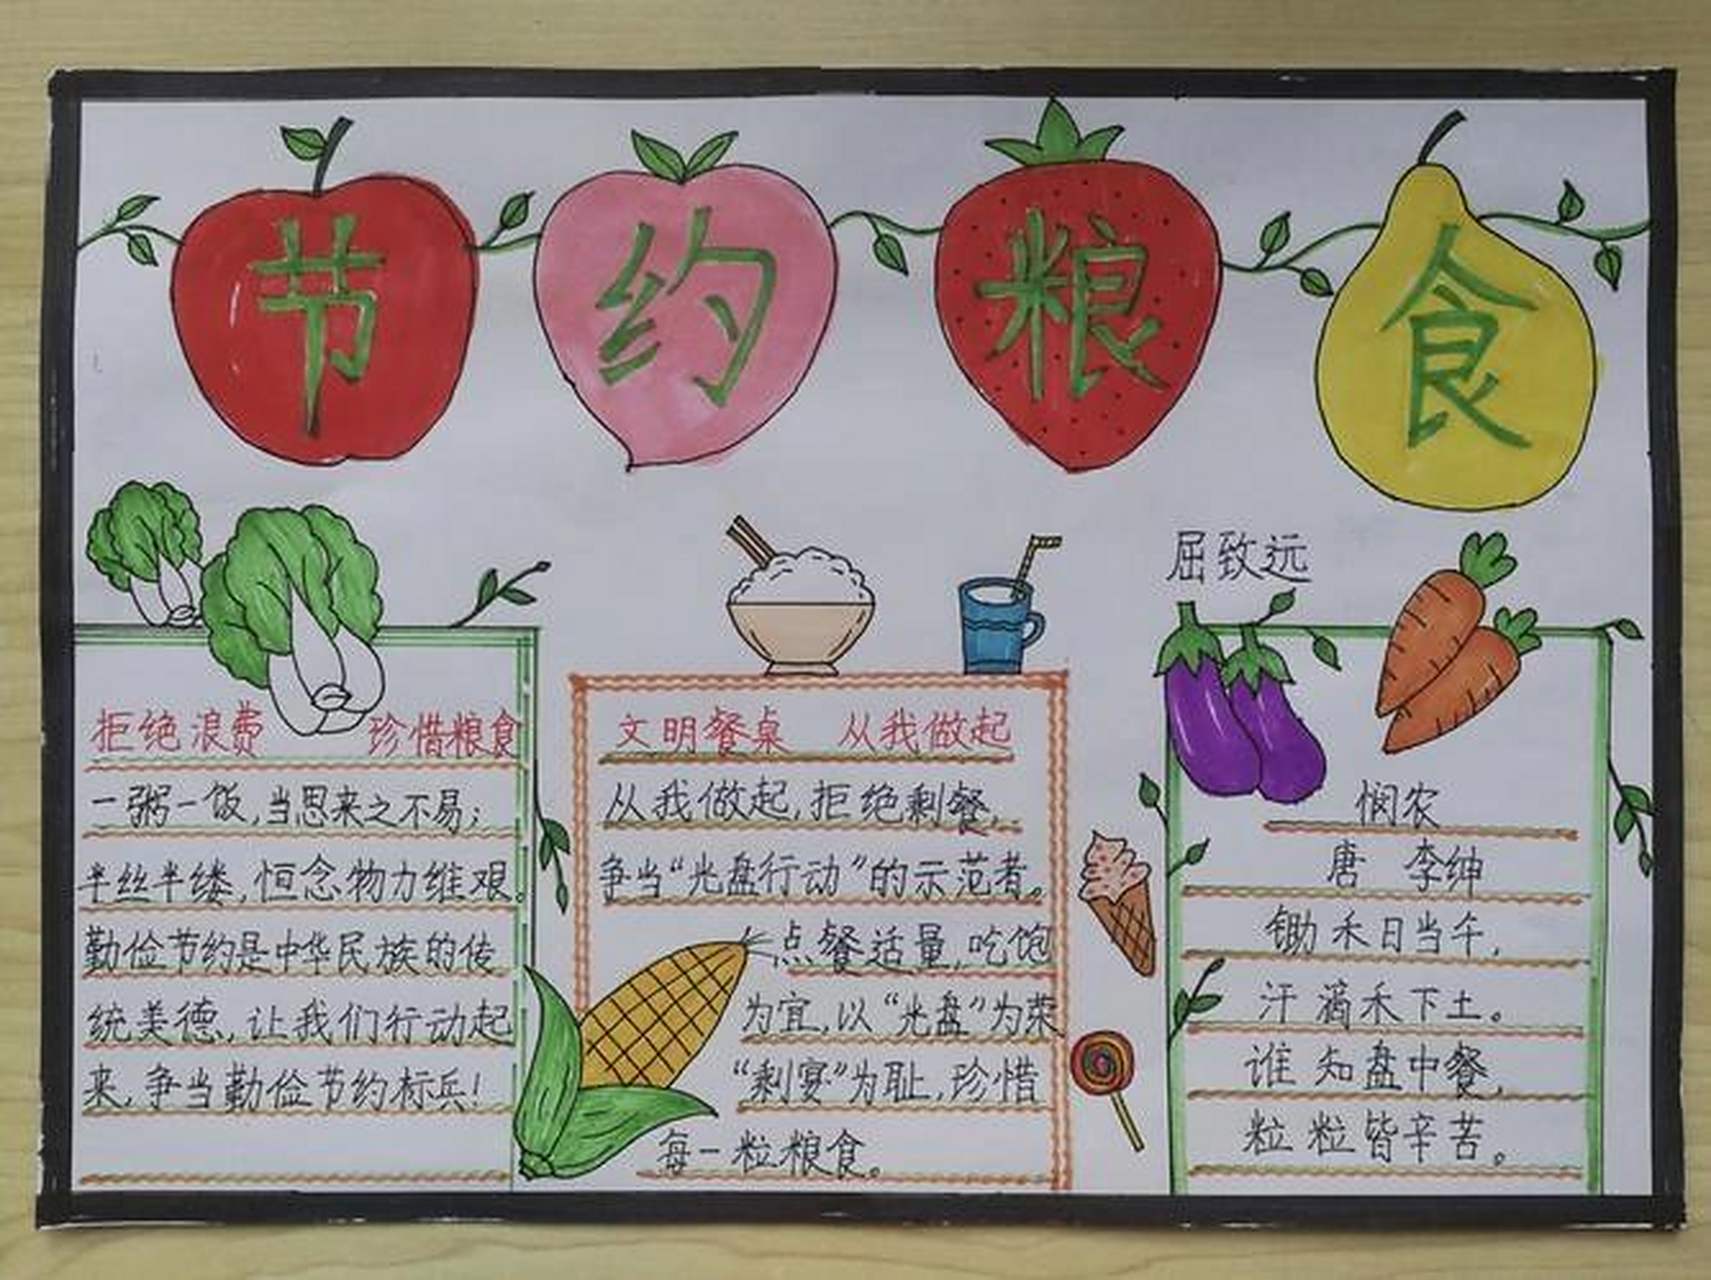 节约粮食
屈致远
拒绝浪费 珍惜粮食
一粥一饭,当思来之不易;
半丝半缕,恒念物力维艰。
勤俭节约是中华民族的传
统美德,让我们行动起
来,争当勤俭节约标兵!
文明餐桌 从我做起
从我做起,拒绝剩餐,
争当“光盘行动”的示范者。
点餐适量,吃饱
为宜,以“光盘”为荣
“剩宴”为耻,珍惜
每一粒粮食。
悯农
唐 李绅
锄禾日当午,
汗滴禾下土。
谁知盘中餐,
粒粒皆辛苦。